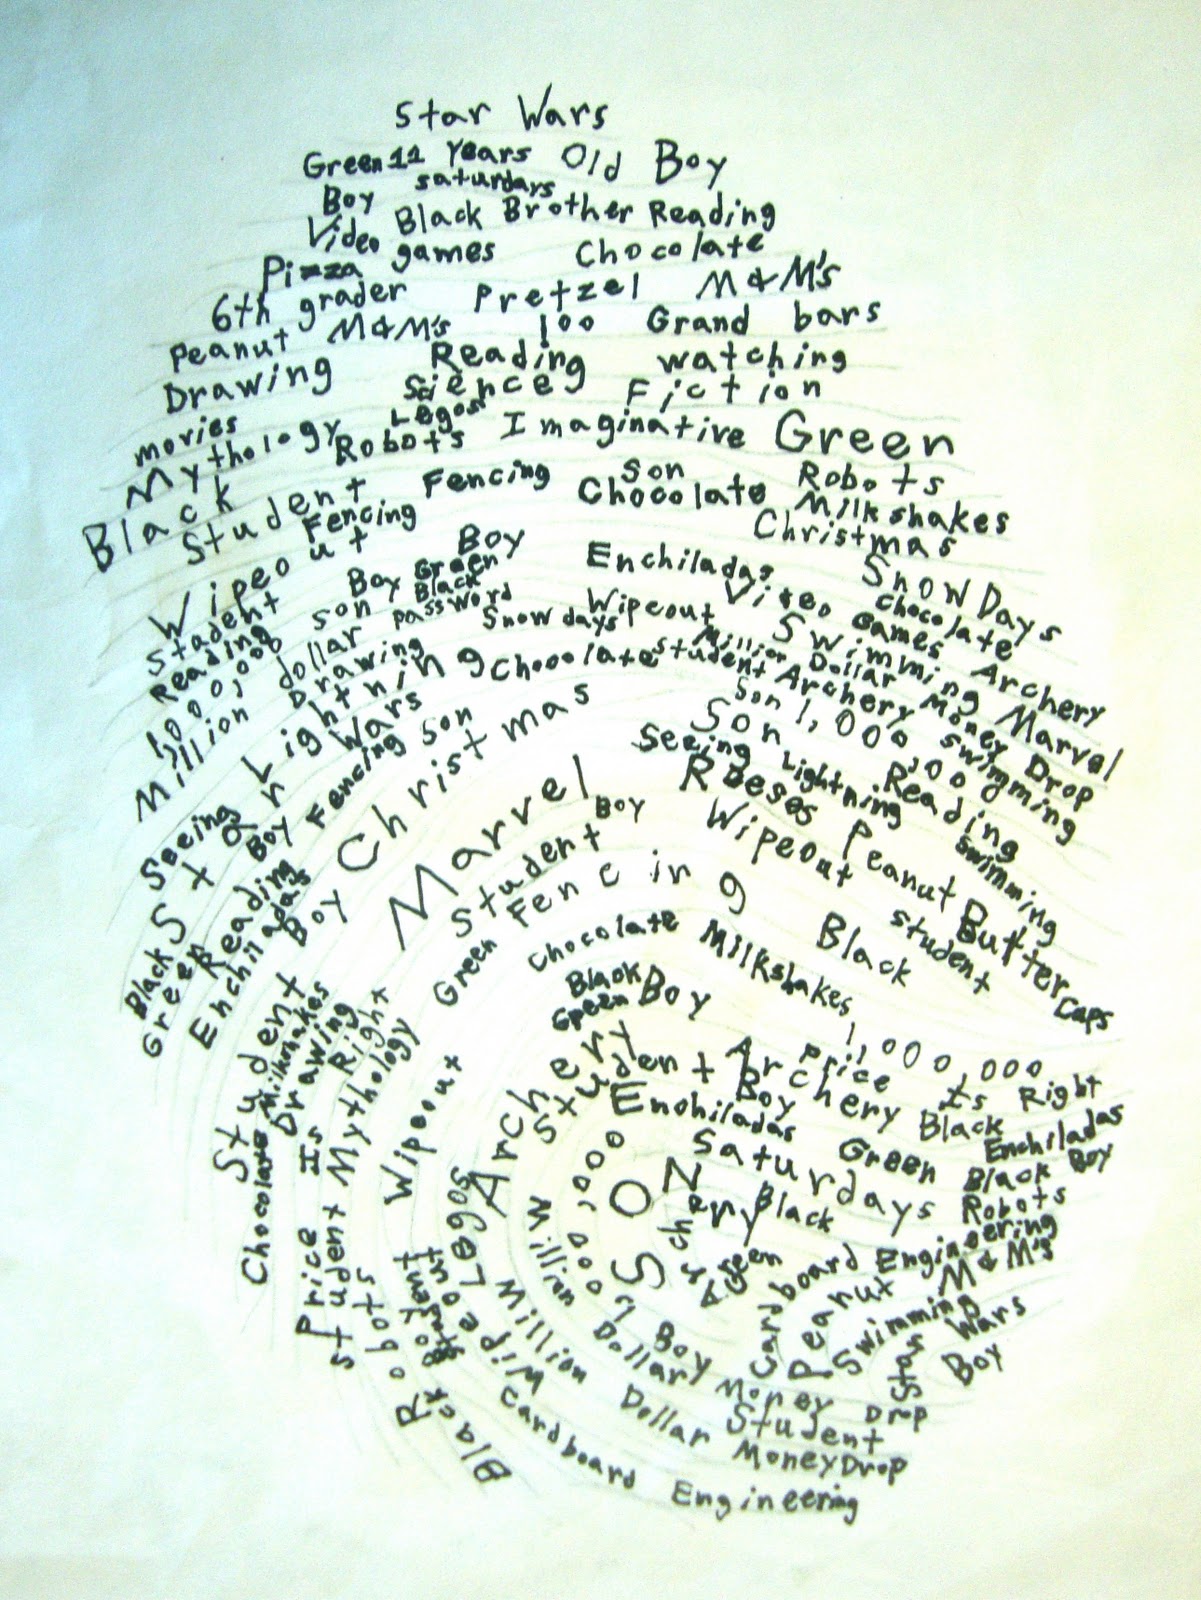 Star Wars
Green 11 Years Old Boy
Boy saturdays
Video games Black Brother Reading
Pizza Chocolate
6th grader Pretzel M&M's
Peanut M&M's 100 Grand bars
Drawing Reading watching
movies Science Fiction
Mythology Legos Imaginative Green
Black Robots Son Robots
Student Fencing Chocolate Milkshakes
Wipeout Fencing Christmas
Boy Enchiladas Snow Days
Student Boy Green Video Games chocolate
Reading son Black Wipeout Swimming Archery
1,000,000 dollar password Snow days Million Dollar Money Drop
Million Drawing Marvel
Lightning Chocolate student Archery swimming
Seeing Star Wars Son 1,000,000
Boy Fencing Son Son Reading
Christmas Seeing Lightning swimming
Black Reading Reeses Peanut Butter Cups
Green Enchiladas Boy Marvel Boy Wipeout student
Student Student Black
Green Fencing
Chocolate Milkshakes
Chocolate Milkshakes Drawing
Price Is Right
Student Mythology
Wipeout
Black Boy 1,000,000
Green
Archery Price Is Right
Student Archery Black Enchiladas
Boy
Enchiladas Green Black Boy
Saturdays Robots
1,000,000
SON
Archery Black
Green
Legos
Million Dollar Money Drop
Boy
Student
Cardboard Engineering
Peanut M&M's
Swimming
Star Wars
Boy
Robots
Student
Boy
Wipeout
Million Dollar Money Drop
Black
Cardboard Engineering